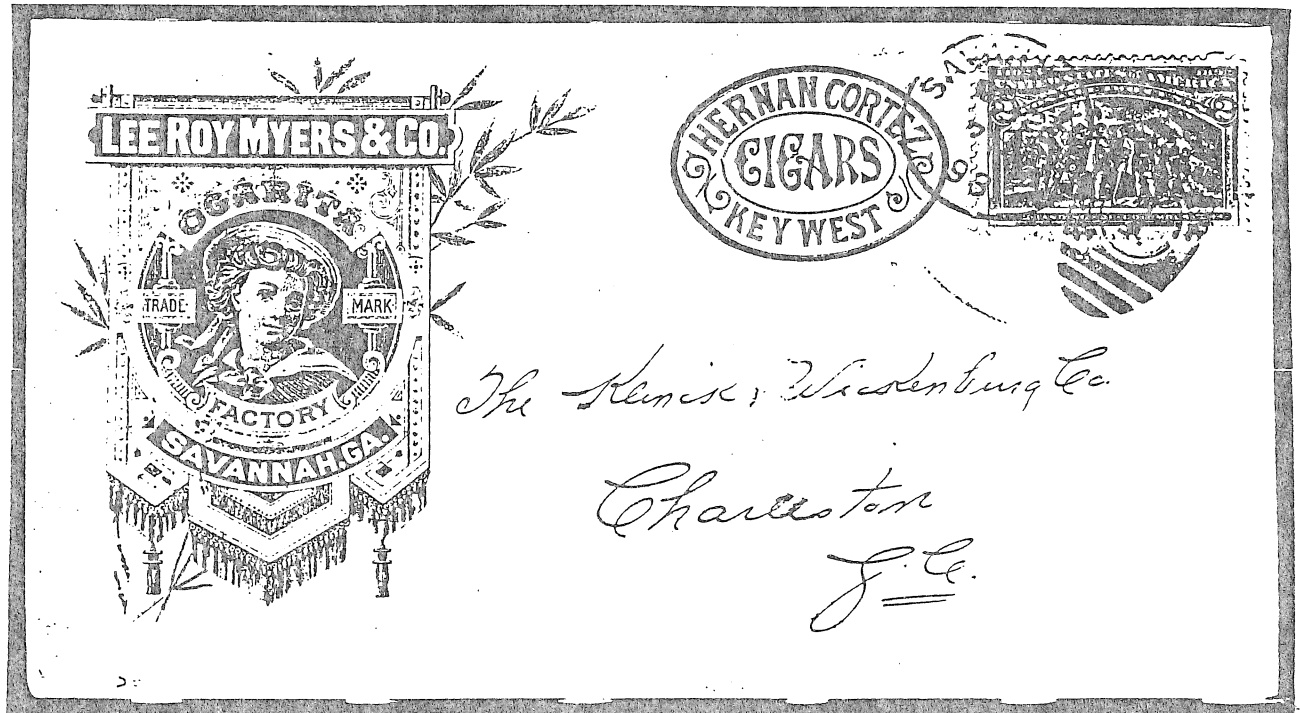 LEE ROY MYERS & CO.
OGARITA
TRADE MARK
FACTORY
SAVANNAH, GA.
HERNAN CORTEZ
CIGARS
KEY WEST
The & Co.
Charleston
S. C.